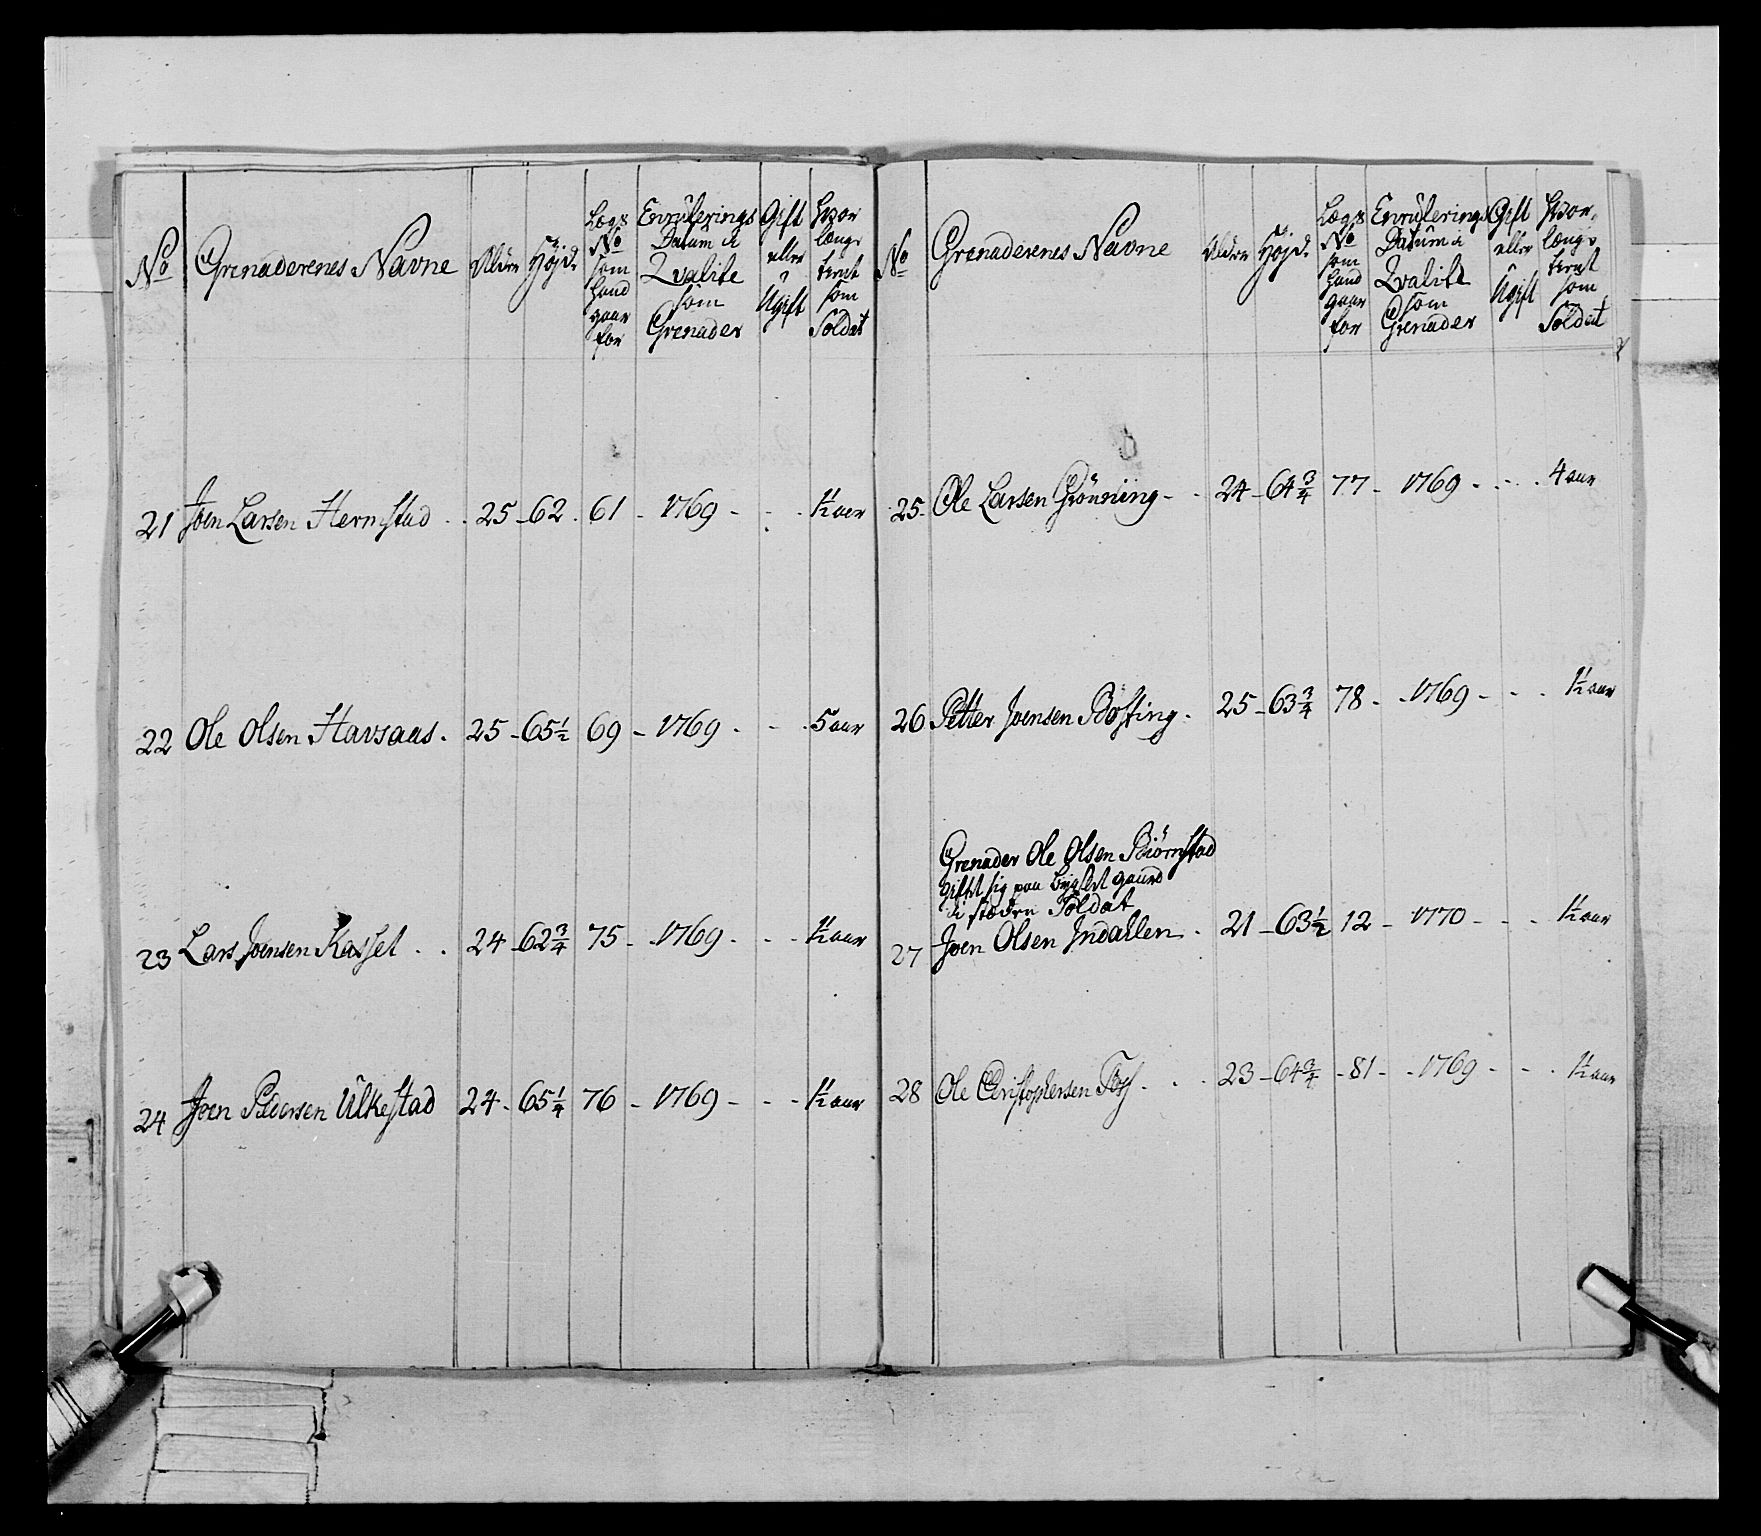 No
Grenaderenes Navne
Alder
Höjde
Lægs
No
som
hand
gaar
for
Enrulerings
Datum i
Qvalite
som
Grenader
Gift
eller
Ugift
hvor
længe
tient
som
Soldat
21 Joen Larsen Hermstad . . 25 - 62 . 61 - 1769 - - . 1½ aar
22 Ole Olsen Havsaas . 25 - 65½ 69 - 1769 - - . 5 aar
23 Lars Joensen Kasset . . 24 - 62¾ 75 - 1769 - - - 1½ aar
24 Joen Pedersen Ulkestad 24 - 65¼ 76 - 1769 - - - 1½ aar
No
Grenaderenes Navne
Alder
Höjde
Lægs
No
som
hand
gaar
for
Enrulerings
Datum i
Qvalite
som
Grenader
Gift
eller
Ugift
hvor
længe
tient
som
Soldat
25 Ole Larsen Grönning - . 24 - 64¾ 77 - 1769 - - . 4 aar
26 Petter Joensen Bosting . 25 - 63¾ 78 - 1769 - - . 1½ aar
Grenader Ole Olsen Biörnstad
gifft sig paa gaard
i steden Soldat
27 Joen Olsen Indallen . 21 - 63½ 12 - 1770 - - - 1½ aar
28 Ole Christophersen Foss . . . 23 - 64¾ - 81 - 1769 - - . 1½ aar